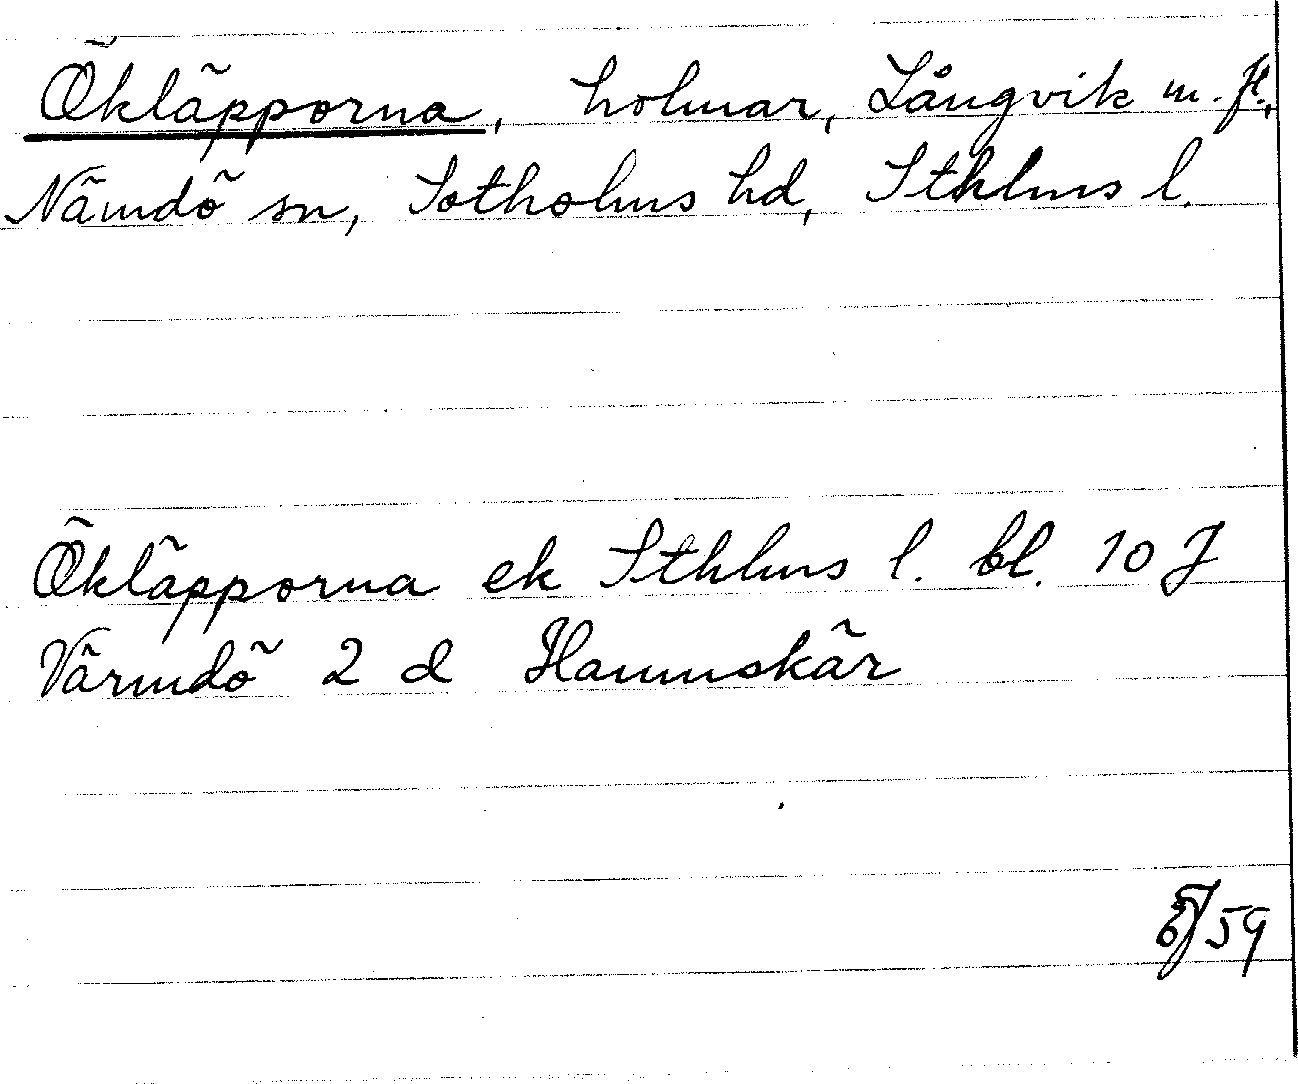 Ökläpporna, holmar, Långvik m. fl.,
Nämdö sn, Sotholms hd, Sthlms l.
Ökläpporna ek Sthlms l. bl. 10 J
Värmdö 2 d Hamnskär
59